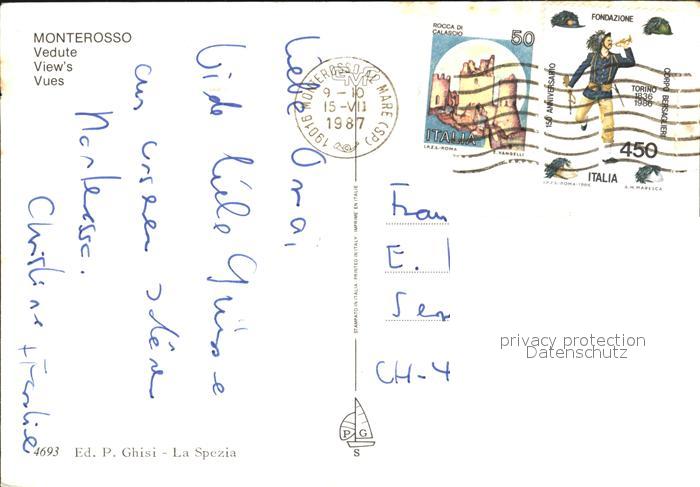 MONTEROSSO
Vedute
View's
Vues
Liebe Omai,
Viele liebe Grüsse
aus unseren
Monterosso.
Christine + Familie
4693 Ed. P. Ghisi - La Spezia
STAMPATO IN ITALIA - PRINTED IN ITALY - IMPRIMÉ EN ITALIE
P G
S
19016 MONTEROSSO AL MARE (SP)
9-10
15-VII
1987
ROCCA DI
CALASCIO
50
ITALIA
I.P.Z.S.-ROMA E. VANGELLI
FONDAZIONE
CORPO BERSAGLIERI
150 ANNIVERSARIO
TORINO
1836
1986
450
ITALIA
I.P.Z.S.-ROMA-1986 A.M. MARESCA
Frau
E.
CH-4
privacy protection
Datenschutz